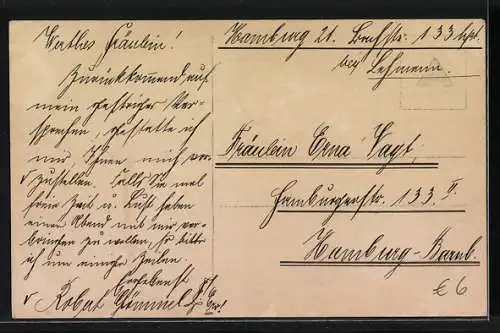 Werthes Fräulein!
Zurückkommend auf
mein gestriges Ver-
sprechen, gestatte ich
mir, Ihnen mich vor-
zustellen. Falls Sie mal
freie Zeit u. Lust haben
einen Abend mit mir ver-
bringen zu wollen, so bitte
ich um einige Zeilen.
Robert
Hamburg 21. Bachstr. 133
bei Lehmann.
Fräulein Erna Vagt,
Hamburgerstr. 133 II.
Hamburg-Barmb.
€ 6